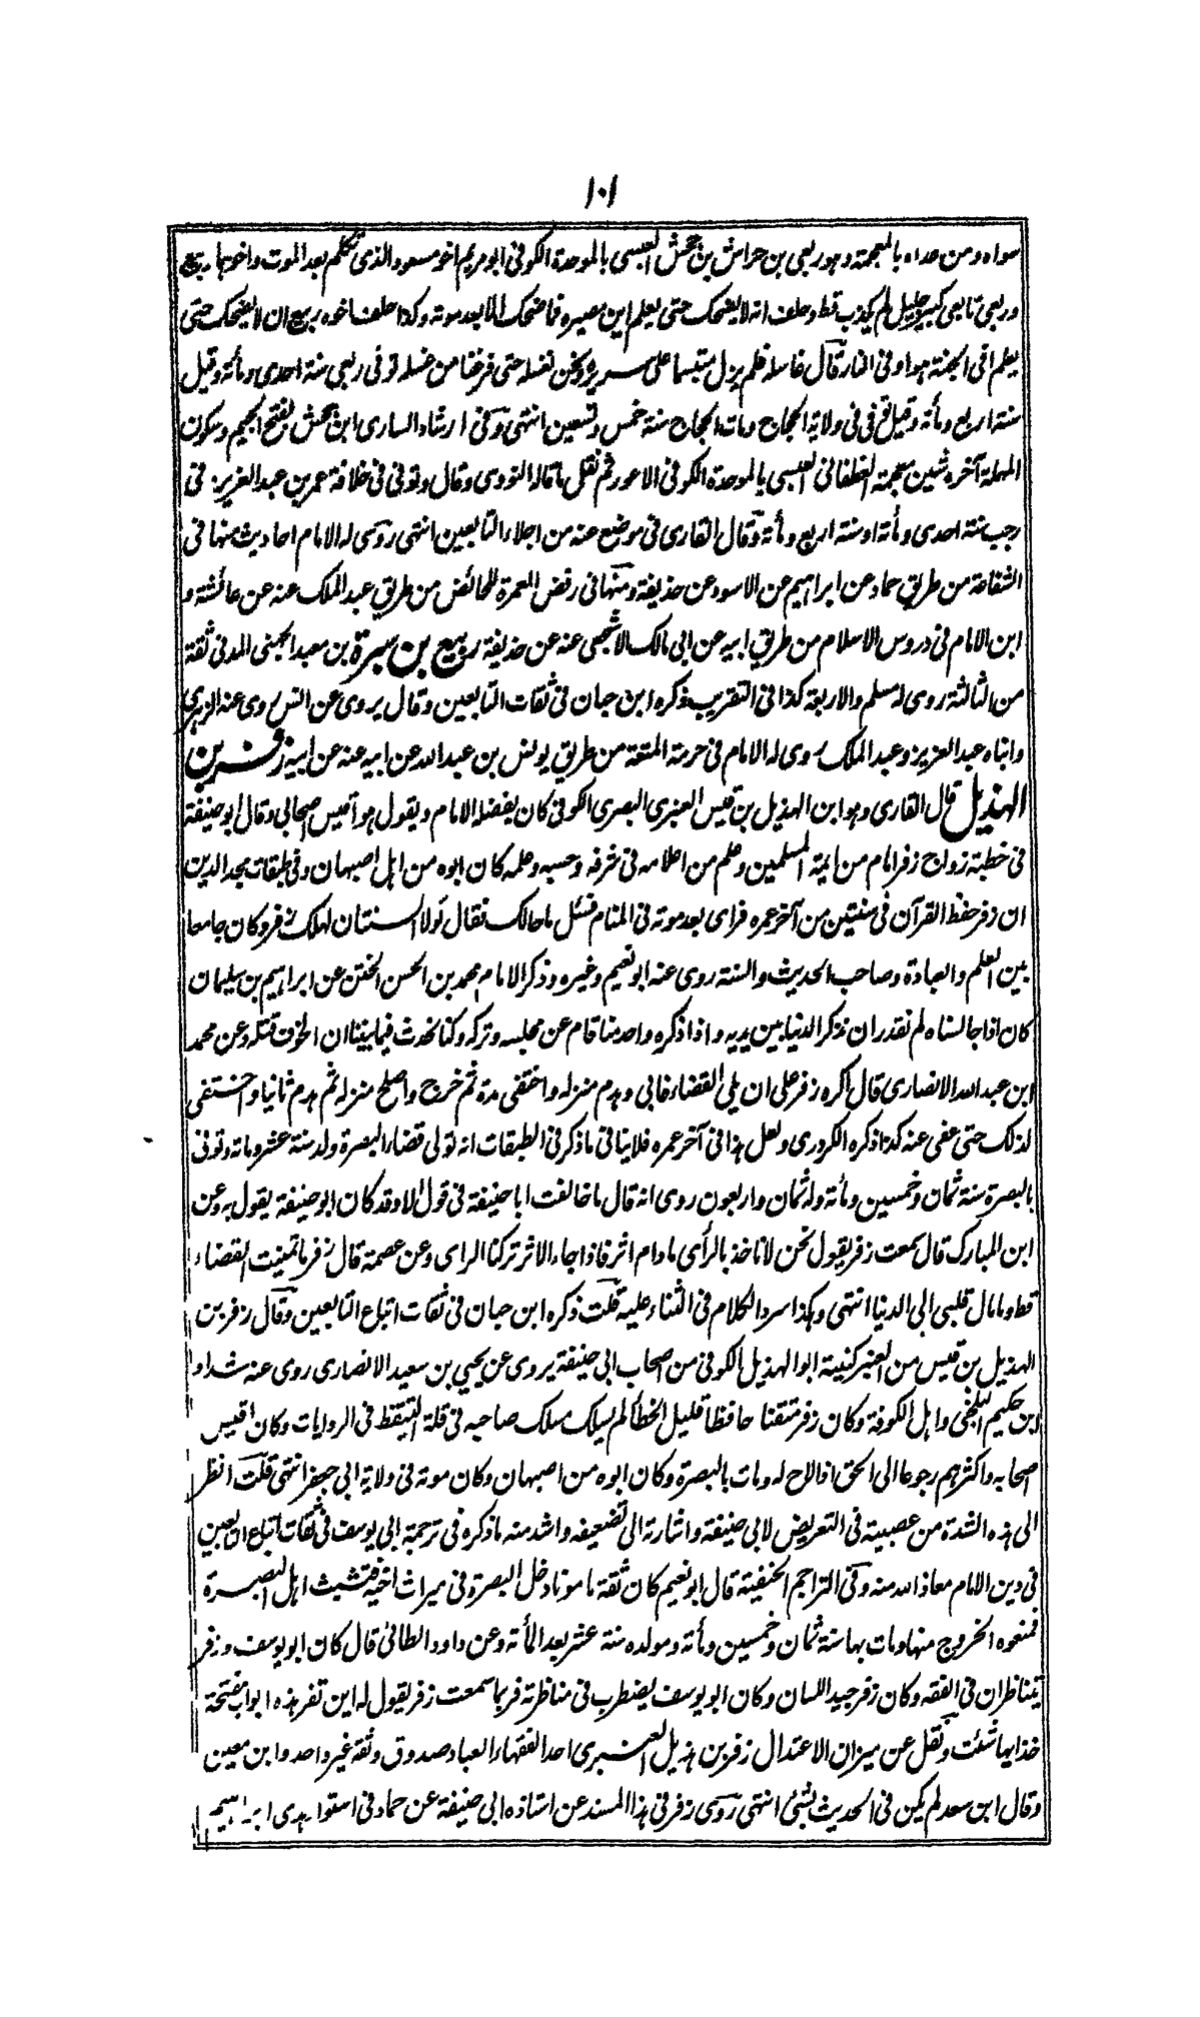 ١٠١
سواه ومن عداه بالمعجمة وهو ربعي بن حراش بن جحش العبسي بالموحدة الكوفي ابو مريم اخو مسعود الذي تكلم بعد الموت واخوهما ربيع
وربعي تابعي كبير جليل لم يكذب قط وحلف انه لا يضحك حتى يعلم اين مصيره فما ضحك الا بعد موته وكذا حلف اخوه ربيع ان لا يضحك حتى
يعلم افي الجنة هو او في النار قال غاسله فلم يزل متبسما على سريره ونحن نغسله حتى فرغنا من غسله توفى ربعي سنة احدى ومأة وقيل
سنة اربع ومأة وقيل توفي في ولاية الحجاج ومات الحجاج سنة خمس وتسعين انتهى وفي ارشاد الساري ابن جحش بفتح الجيم وسكون
المهملة آخره شين معجمة الغطفاني العبسي بالموحدة الكوفي الاعور ثم نقل ما قاله النووي وقال وتوفي في خلافة عمر بن عبد العزيز في
رجب سنة احدى ومأة او سنة اربع ومأة وقال القاري في موضع عنه من اجلاء التابعين انتهى روى له الامام احاديث منها في
الشفاعة من طريق حماد عن ابراهيم عن الاسود عن حذيفة ومنها في رفض العمرة للحائض من طريق عبد الملك عنه عن عائشة و
ابن الامام في دروس الاسلام من طريق ابيه عن ابي مالك الاشجعي عنه عن حذيفة ربيع بن سبرة بن معبد الجهني المدني ثقة
من الثالثة روى له مسلم والاربعة كذا في التقريب وذكره ابن حبان في ثقات التابعين وقال يروي عن انس روى عنه الزهري
وابناه عبد العزيز وعبد الملك روى له الامام في حرمة المتعة من طريق يونس بن عبد الله عن ابيه عنه عن ابيه زفر بن
الهذيل قال القاري وهو ابن الهذيل بن قيس العنبري البصري الكوفي كان يفضله الامام ويقول هو اقيس اصحابي وقال ابو حنيفة
في خطبة زواج زفر امام من ايمة المسلمين وعلم من اعلامه في شرفه وحسبه وعلمه كان ابوه من اهل اصبهان وفي طبقات مجد الدين
ان زفر حفظ القرآن في سنتين من آخر عمره فراى بعد موته في المنام فسئل ما حالك فقال لولا السنتان لهلك زفر وكان جامعا
بين العلم والعبادة وصاحب الحديث والسنة روى عنه ابو نعيم وغيره وذكر الامام محمد بن الحسن الختن عن ابراهيم بن سليمان
كان اذا جالسناه لم نقدر ان نذكر الدنيا بين يديه واذا ذكره واحد منا قام عن مجلسه وتركه وكنا نحدث فيما بيننا ان الخوف قتله وعن محمد
ابن عبد الله الانصاري قال اكره زفر على ان يلي القضاء فابي وهدم منزله واختفى مدة ثم خرج واصلح منزله ثم هدم ثانيا واختفى
لذلك حتى عفى عنه كذا ذكره الكردري ولعل هذا في آخر عمره فلا ينافي ما ذكر في الطبقات انه تولى قضاء البصرة ولد سنة عشر ومائة وتوفى
بالبصرة سنة ثمان وخمسين ومأة وله ثمان واربعون روى انه قال ما خالفت ابا حنيفة في قول الا وقد كان ابو حنيفة يقول به وعن
ابن المبارك قال سمعت زفر يقول نحن لا ناخذ بالرأى ما دام اثر فاذا جاء الاثر تركنا الراى وعن عصمة قال زفر ما تمنيت القضاء
قط وما مال قلبي الى الدنيا انتهى وهكذا سرد الكلام في الثناء عليه قلت ذكره ابن حبان في ثقات اتباع التابعين وقال زفر بن
الهذيل بن قيس من العنبر كنيته ابو الهذيل الكوفي من اصحاب ابي حنيفة يروى عن يحيى بن سعيد الانصاري روى عنه شداد
ابن حكيم البلخي واهل الكوفة وكان زفر متقنا حافظا قليل الخطأ لم يسلك مسلك صاحبه في قلة التيقظ في الروايات وكان اقيس
اصحابه واكثرهم رجوعا الى الحق اذا لاح له ومات بالبصرة وكان ابوه من اصبهان وكان موته في ولاية ابي جعفر انتهى قلت انظر
الى هذه الشدة من عصبيته في التعريض لابي حنيفة واشارته الى تضعيفه واشد منه ما ذكره في ترجمة ابي يوسف في ثقات اتباع التابعين
في دين الامام معاذ الله منه وفي التراجم الحنيفية قال ابو نعيم كان ثقة مامونا دخل البصرة في ميراث اخيه فتشبث اهل البصرة
فمنعوه الخروج منها ومات بها سنة ثمان وخمسين ومأة ومولده سنة عشر بعد المأة وعن داود الطائي قال كان ابو يوسف وزفر
يتناظران في الفقه وكان زفر جيد اللسان وكان ابو يوسف يضطرب في مناظرته فربما سمعت زفر يقول له اين تفر هذه ابواب مفتحة
خذ ايها شئت ونقل عن ميزان الاعتدال زفر بن هذيل العنبري احد الفقهاء العباد صدوق وثقه غير واحد وابن معين
وقال ابن سعد لم يكن في الحديث بشئ انتهى روى زفر في هذا المسند عن استاذه ابي حنيفة عن حماد في استواء يدي ابراهيم